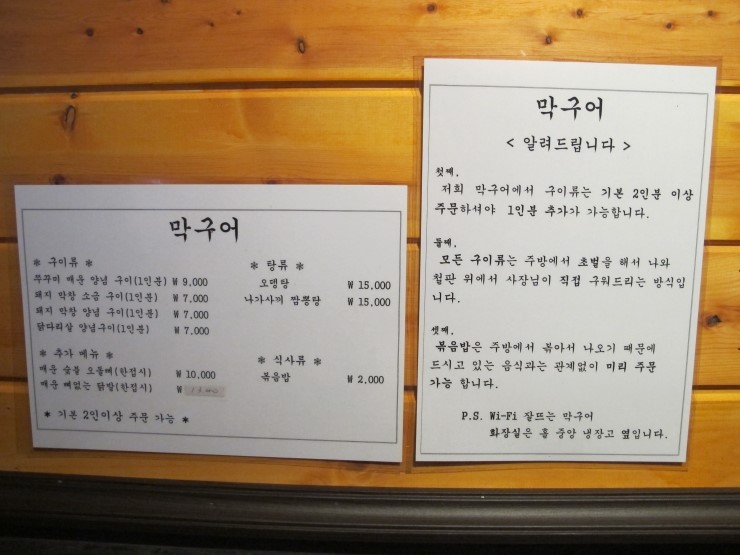 막구어
※ 구이류 ※
쭈꾸미 매운 양념 구이(1인분) ₩ 9,000
돼지 막창 소금 구이(1인분) ₩ 7,000
돼지 막창 양념 구이(1인분) ₩ 7,000
닭다리살 양념구이(1인분) ₩ 7,000
※ 추가 메뉴 ※
매운 숯불 오돌뼈(한접시) ₩ 10,000
매운 뼈없는 닭발(한접시) ₩
※ 기본 2인이상 주문 가능 ※
※ 탕류 ※
오뎅탕 ₩ 15,000
나가사끼 짬뽕탕 ₩ 15,000
※ 식사류 ※
볶음밥 ₩ 2,000
막구어
< 알려드립니다 >
첫째,
저희 막구어에서 구이류는 기본 2인분 이상
주문하셔야 1인분 추가가 가능합니다.
둘째,
모든 구이류는 주방에서 초벌을 해서 나와
철판 위에서 사장님이 직접 구워드리는 방식입
니다.
셋째,
볶음밥은 주방에서 볶아서 나오기 때문에
드시고 있는 음식과는 관계없이 미리 주문
가능 합니다.
P.S. Wi-Fi 잘뜨는 막구어
화장실은 홀 중앙 냉장고 옆입니다.